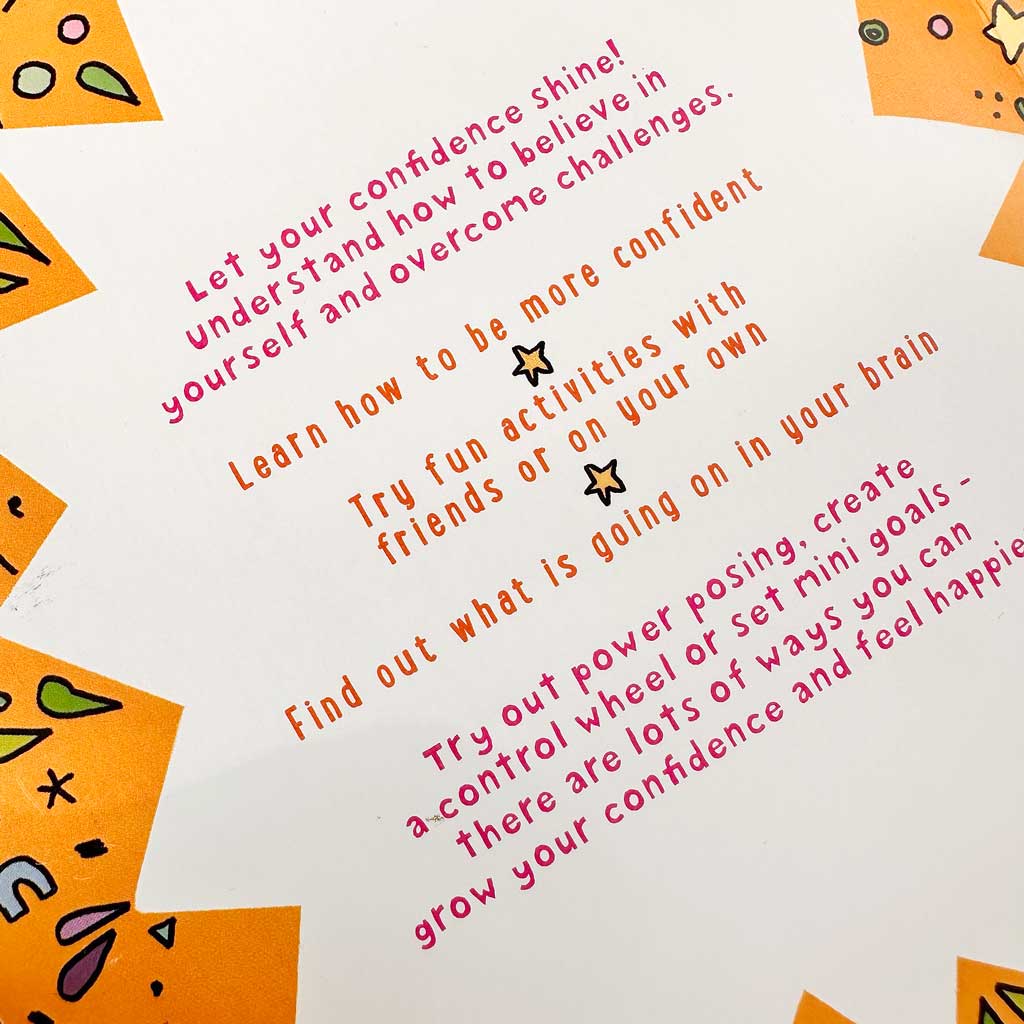 Let your confidence shine!
understand how to believe in
yourself and overcome challenges.
Learn how to be more confident
Try fun activities with
friends or on your own
Find out what is going on in your brain
Try out power posing, create
a control wheel or set mini goals -
there are lots of ways you can
grow your confidence and feel happie